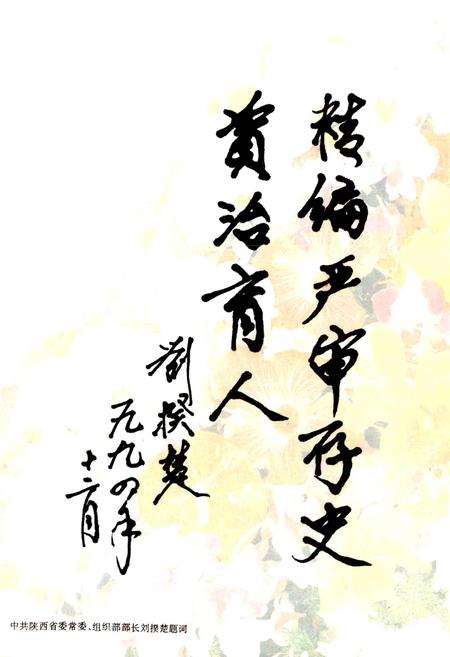 精编严审存史
资治育人
刘揆楚
一九九四年
十二月
中共陕西省委常委、组织部部长刘揆楚题词